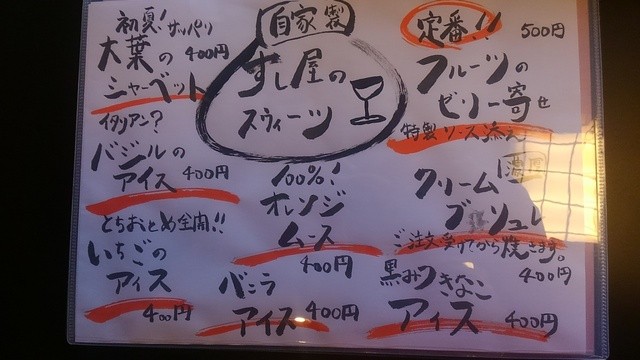 自家製
すし屋の
スウィーツ
定番!! 500円
フルーツの
ゼリー寄せ
特製ソース添え
濃厚
クリーム
ブリュレ
ご注文受けてから焼きます。
400円
黒みつきなこ
アイス 400円
100%!
オレンジ
ムース
400円
バニラ
アイス 400円
初夏! サッパリ
大葉の 400円
シャーベット
イタリアン?
バジルの
アイス 400円
とちおとめ全開!!
いちごの
アイス
400円